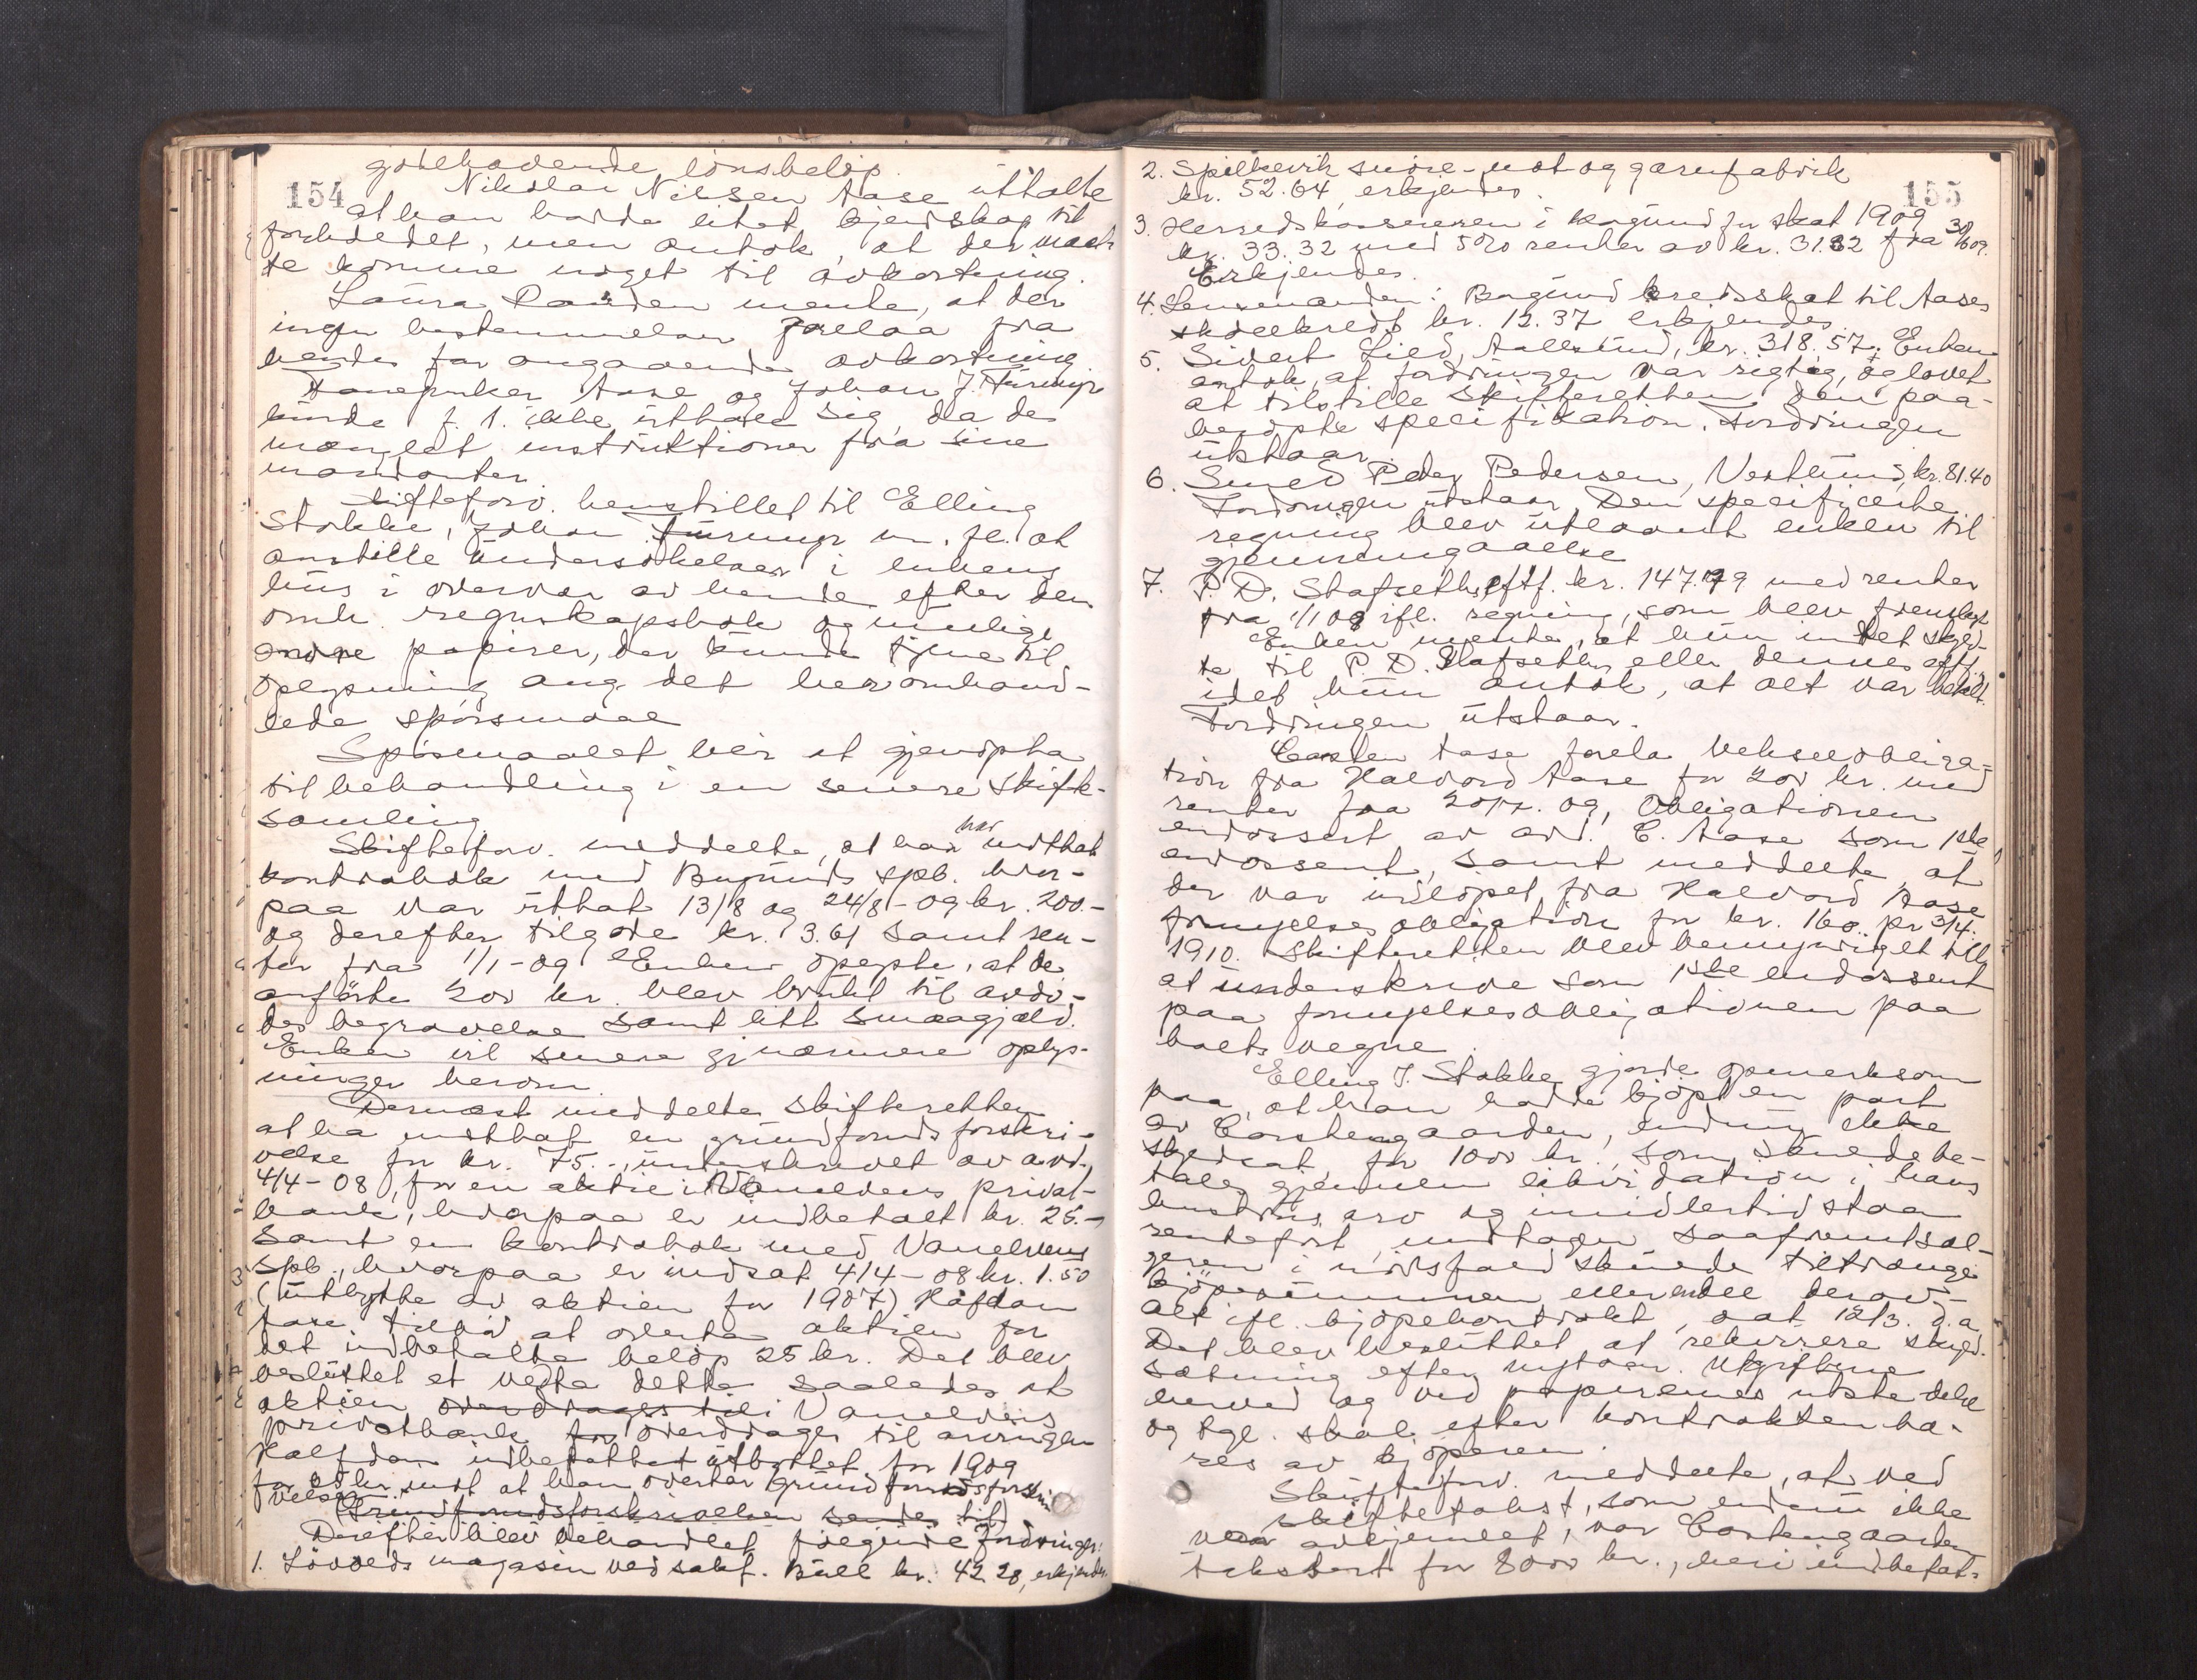 154
godthavende lønsbeløp.
Nikolai Nilsen Aase uttalte
at han hadde litet kjendskap til
forholdet, men antok, at der maat
te komme noget til avkortning.
Laura mente, at der
ingen bestemmelser forelaa fra
hendes far angaaende avkortning
Aase og Johan J. Furmyr
kunde f. t. ikke uttale sig, da de
manglet instruktioner fra sine
mandanter.
Skifteforv. henstillet til Elling
Stokke, Johan Furmyr m. fl. at
anstille undersøkelser i enkens
hus i overvær av hende efter den
omh. regnskapsbok og mulige
andre papirer, der kunde tjene til
oplysning ang. det her omhand-
lede spørsmaal
Spørsmaalet blir at gjenopta
til behandling i en senere skifte-
samling
Skifteforv. meddelte, at han har mottat
kontrabok med Borgunds spb. hvor-
paa var uttat 13/8 og 24/8-09 kr. 200.-
og derefter tilgode kr. 3.61 samt ren-
ter fra 1/1-09 Enken oplyste, at de
anførte 200 kr. blev brukt til avdø-
des begravelse samt litt smaagjæld.
Enken vil senere gi nærmere oplys-
ninger herom
Dernæst meddelte skifteretten
at ha mottat en grundfondsforskri-
velse for kr. 75.-, underskrevet av avd.
4/4-08, for en aktie i Vanelvens privat-
bank, hvorpaa er indbetalt kr. 25.-,
samt en kontrabok med Vanelvens
spb., hvorpaa er indsat 4/4-08 kr. 1.50
(utbytte av aktien for 1907) Halfdan
Aase tilbød at overta aktien for
det indbetalte beløp 25 kr. Det blev
besluttet at vedta dette saaledes at
aktien overdrages til i Vanelvens
privatbank for overdrages til arvingen
Halfdan indbefattet utbyttet for 1909
for 25 kr. mot at han overtar grundfondsforskri
velsen.
(Grundfondsforskrivelsen sendes tit)
Derefter blev behandlet følgende fordringer:
1. Løvolds magasin ved sakf. Bull kr. 42.28, erkjendes.
155
2. Spilkevik snøre- not og garnfabrik
kr. 52.64, erkjendes.
3. Herredskassereren i Borgund for skat 1909
kr. 33.32 med 5% renter av kr. 31.32 fra 30/6 09.
Erkjendes.
4. Lensmanden: Borgund kredsskat til Aases
skolekreds kr. 12.37 erkjendes.
5. Sivert Lied, Aalesund, kr. 318.57. Enken
antok, at fordringen var rigtig, og lovet
at tilstille skifteretten den paa-
beropte specifikation. Fordringen
utstaar.
6. Smed Peder Pedersen, Vestlund, kr. 81.40
Fordringen utstaar. Den specificerte
regning blev utlaant enken til
gjennemgaaelse
7. P. D. Stafseths eftf. kr. 147.79 med renter
fra 1/1 08 ifl. regning, som blev fremlagt
Enken mente, at hun intet skyld-
te til P. D. Stafseth eller dennes eftf.
idet hun antok, at alt var betalt.
Fordringen utstaar.
Carsten Aase forela vekselobliga-
tion fra Halvord Aase for 200 kr. med
renter fra 09, Obligationen
endossert av avd. C. Aase som 1ste
endossent, samt meddelte, at
der var indløpet fra Halvord Aase
fornyelsesobligation for kr. 160.. pr 3/4.
1910. Skifteretten blev bemyndiget til
at underskrive som 1ste endossent
paa fornyelsesobligationen paa
boets vegne.
Elling J. Stokke gjorde opmerksom
paa, at han hadde kjøpt en part
av Carstengaarden, endnu ikke
skyldsat, for 1000 kr., som skulde be-
tales gjennem likvidation i hans
hustrus arv og imidlertid staa
rentefrit, undtagen saafremt sæl-
geren i nødsfald skulde tiltrænge
kjøpesummen eller endel derav-
alt ifl. kjøpekontrakt, dat. 12/3. d.a.
Det blev besluttet at rekvirere skyld-
sætning efter nytaar. Utgifterne
herved og ved papirernes utstedelse
og tgl. skal efter kontrakten bæ-
res av kjøperen.
Skifteforv. meddelte, at ved
skiftetakst, som endnu ikke
var avhjemlet, var Carstengaarden
takstert for 8000 kr., heri indbefat-